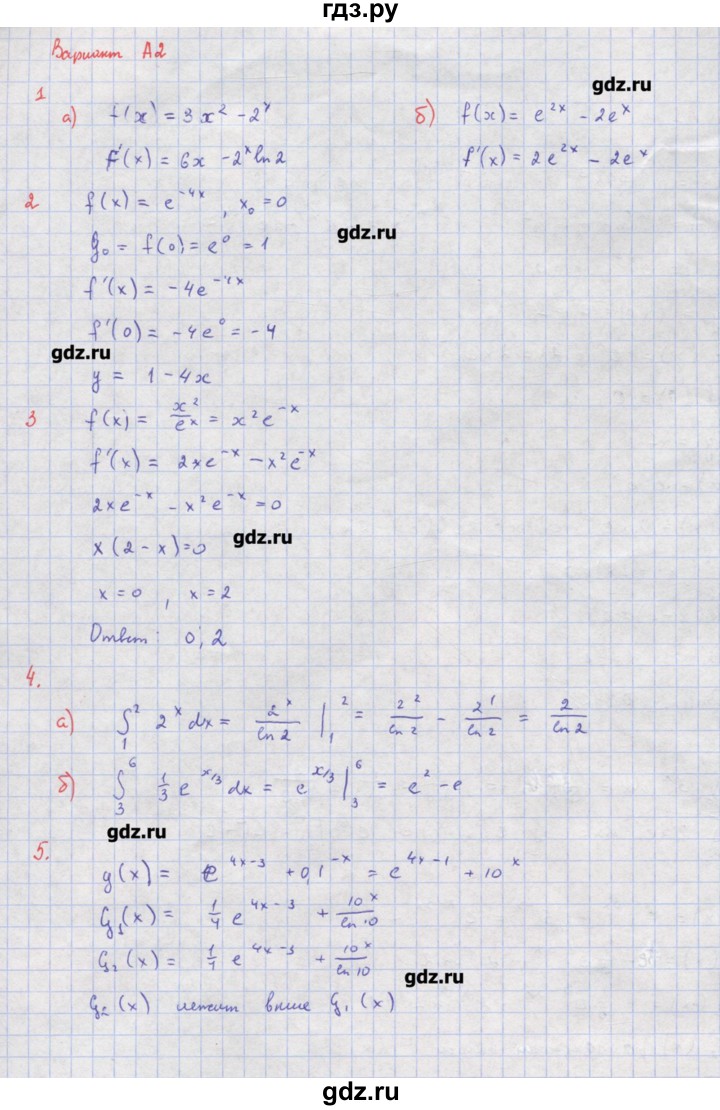 гдз.ру
Вариант А2
gdz.ru
1
а) f(x) = 3x² - 2ˣ
б) f(x) = e²ˣ - 2eˣ
f'(x) = 6x - 2ˣ ln 2
f'(x) = 2e²ˣ - 2eˣ
2 f(x) = e⁻⁴ˣ, x₀ = 0
gdz.ru
y₀ = f(0) = e⁰ = 1
f'(x) = -4e⁻⁴ˣ
f'(0) = -4e⁰ = -4
gdz.ru
y = 1 - 4x
3 f(x) = x²/eˣ = x²e⁻ˣ
f'(x) = 2xe⁻ˣ - x²e⁻ˣ
2xe⁻ˣ - x²e⁻ˣ = 0
x(2 - x) = 0
gdz.ru
x = 0, x = 2
Ответ: 0; 2
4.
а) ∫₁² 2ˣ dx = 2ˣ/ln 2 |₁² = 2²/ln 2 - 2¹/ln 2 = 2/ln 2
б) ∫₃⁶ 1/3 e^(x/3) dx = e^(x/3) |₃⁶ = e² - e
gdz.ru
5.
y(x) = e^(4x-3) + 0,1^(-x) = e^(4x-1) + 10ˣ
G₁(x) = 1/4 e^(4x-3) + 10ˣ/ln 10
G₂(x) = 1/4 e^(4x-3) + 10ˣ/ln 10
gdz.ru
G₂(x) лежит выше G₁(x)
gdz.ru